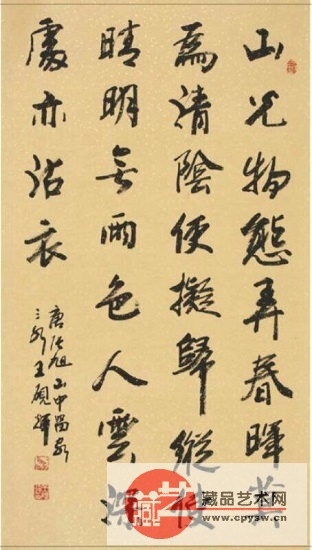 山光物態弄春暉莫
為清陰便擬歸縱使
晴明無雨色人雲深
處亦沾衣
唐张旭山中留客
王
藏艺
藏品艺术网
www.cpysw.cn